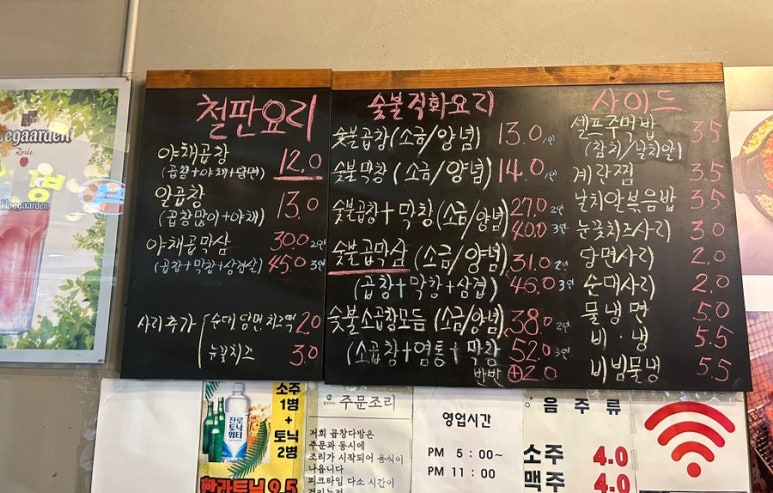 철판요리
야채곱창 12.0
(곱창+야채+당면)
알곱창 13.0
(곱창많이+야채)
야채곱막삼 30.0 2인
(곱창+막창+삼겹살) 45.0 3인
사리추가 순대, 당면, 치즈떡 2.0
눈꽃치즈 3.0
숯불직화요리
숯불곱창(소금/양념) 13.0/인
숯불막창(소금/양념) 14.0/인
숯불곱창+막창(소금/양념) 27.0 2인
40.0 3인
숯불곱막삼(소금/양념) 31.0 2인
(곱창+막창+삼겹) 46.0 3인
숯불소곱창모듬(소금/양념) 38.0 2인
(소곱창+염통+막창) 52.0 3인
반반 +2.0
사이드
셀프주먹밥 3.5
(참치/날치알)
계란찜 3.5
날치알볶음밥 3.5
눈꽃치즈사리 3.0
당면사리 2.0
순대사리 2.0
물냉면 5.0
비·냉 5.5
비빔물냉 5.5
egaarden
Rosée
Hoegaarden
소주
1병
+
토닉
2병
진로
토닉
워터
한라토닉 9.5
주문조리
저희 곱창다방은
주문과 동시에
조리가 시작되어 음식이
나옵니다
피크타임 다소 시간이
영업시간
PM 5:00~
PM 11:00
음 주 류
소주 4.0
맥주 4.0